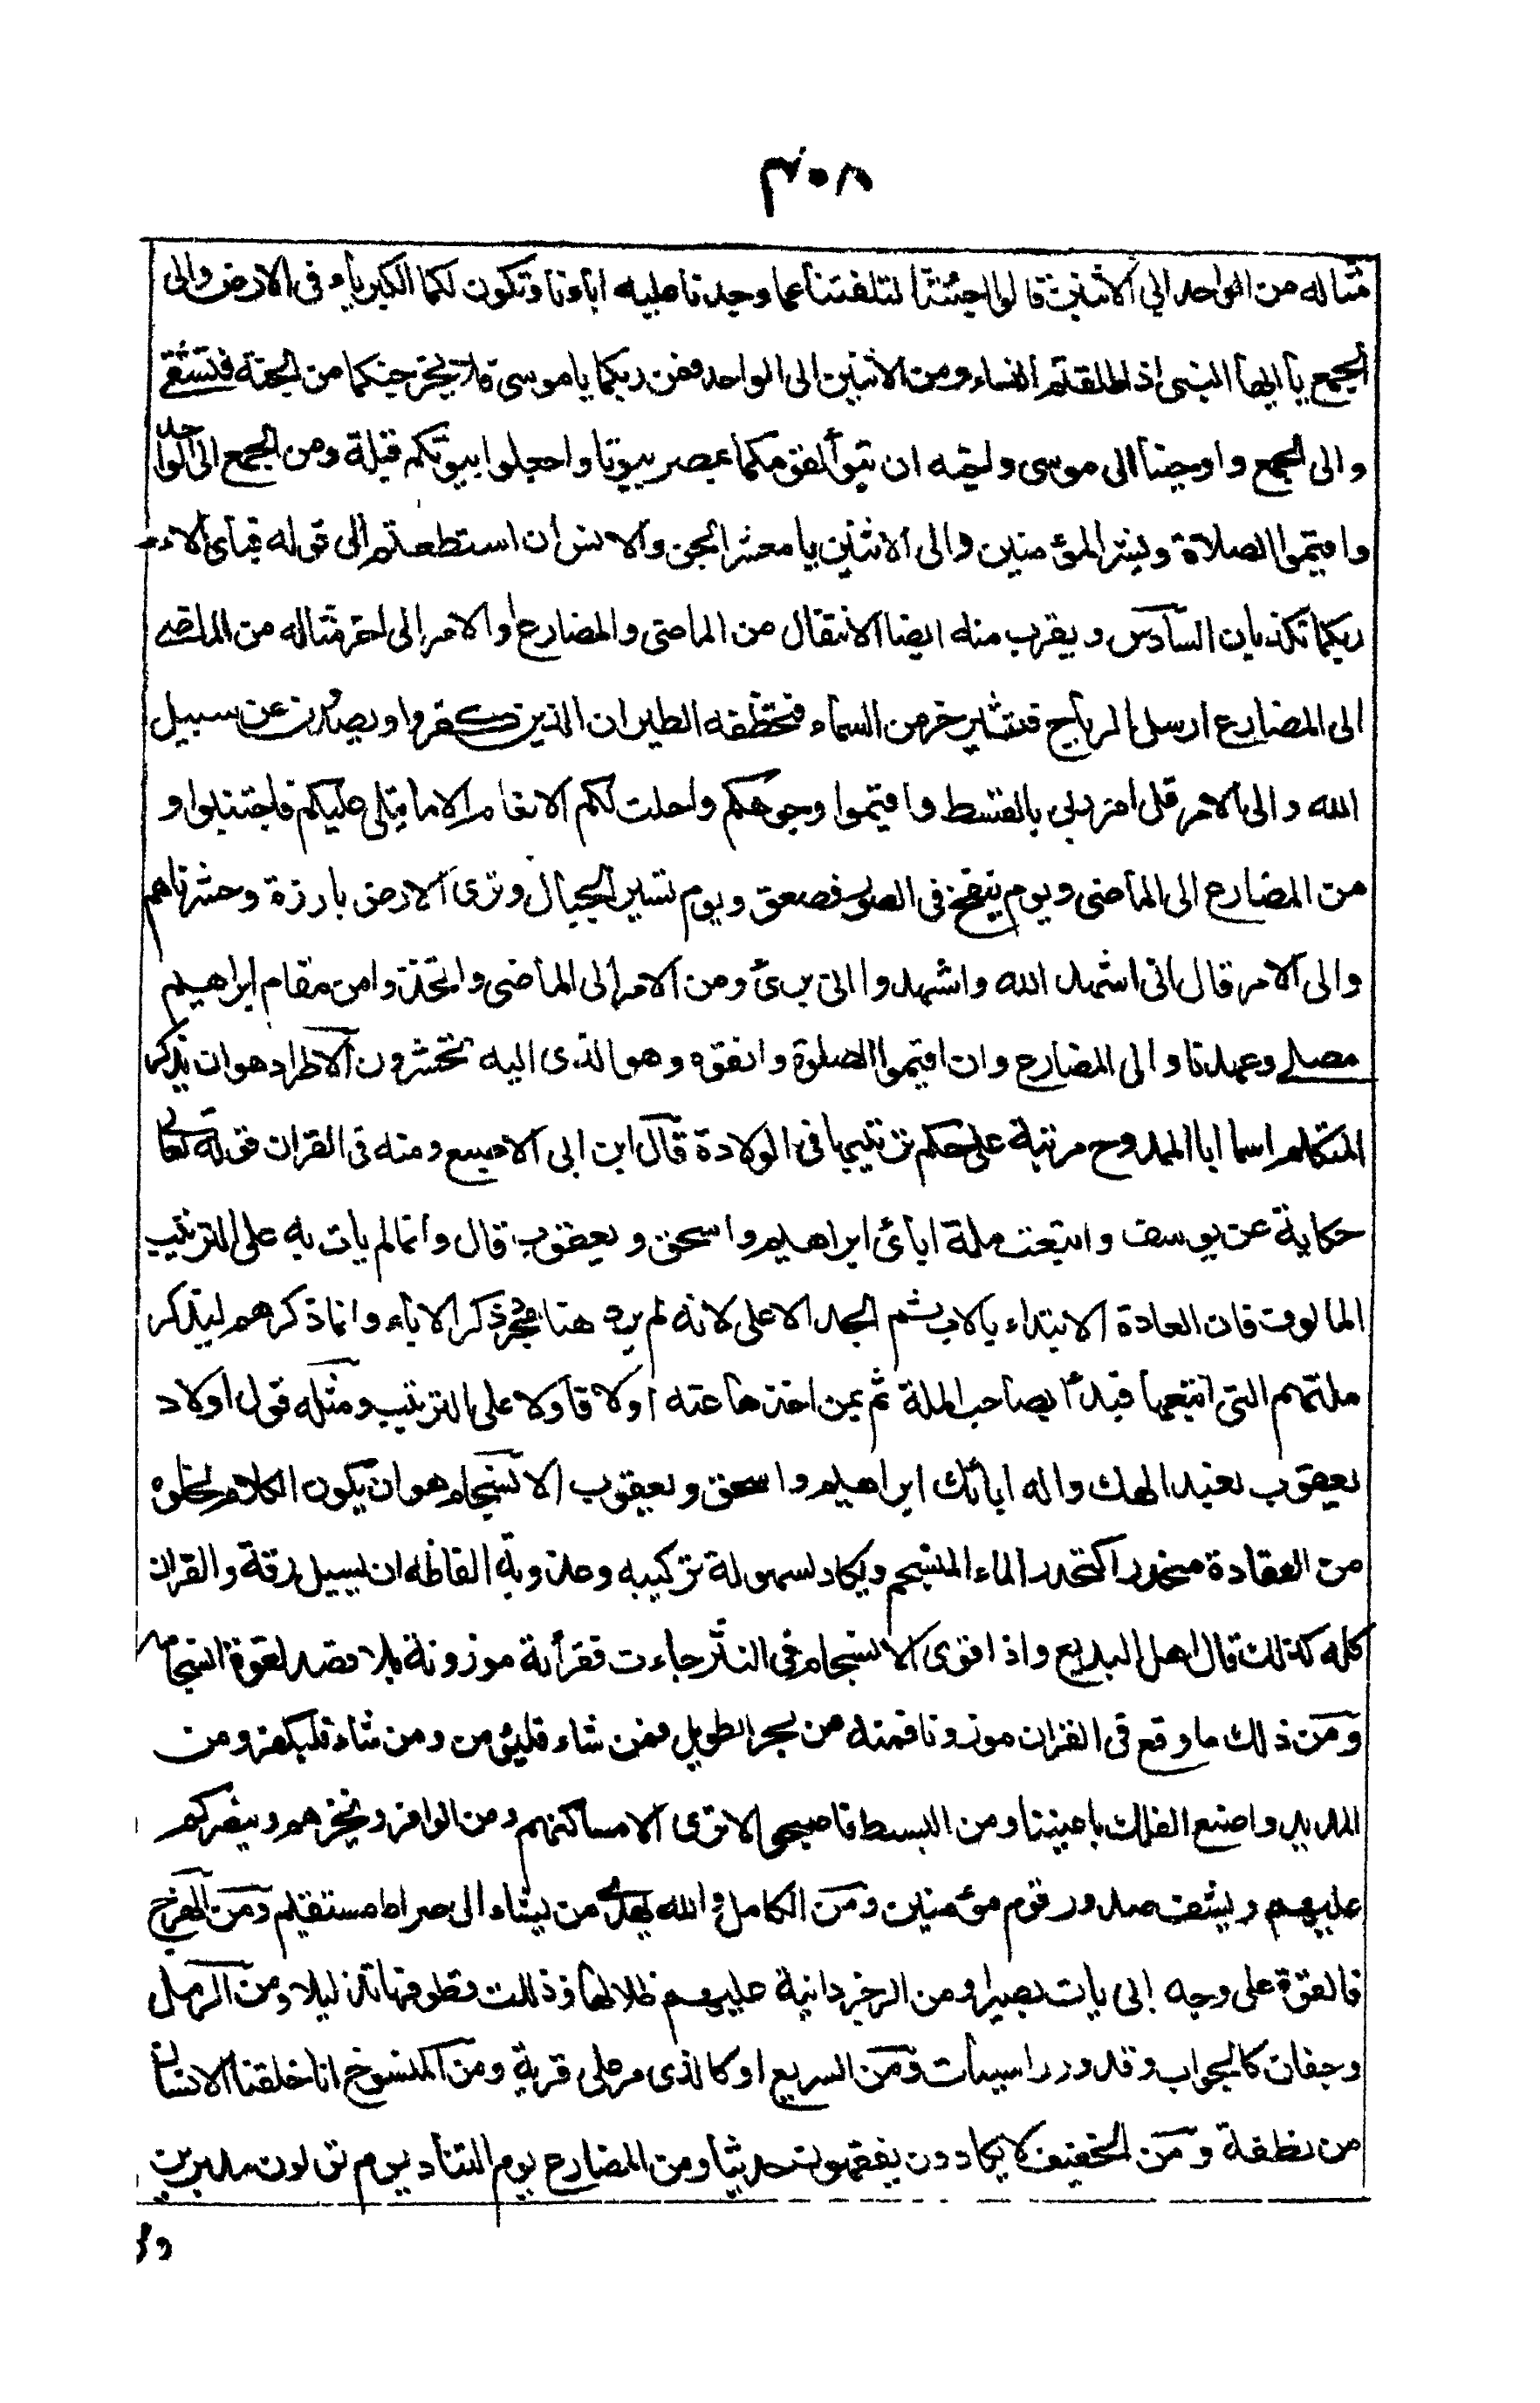 مثاله من الواحد الى الاثنين قالوا اجئتنا لتلفتنا عما وجدنا عليه اباءنا وتكون لكما الكبرياء فى الارض والى
الجمع يا ايها النبى اذا طلقتم النساء ومن الاثنين الى الواحد فمن ربكما يا موسى فلا يخرجنكما من الجنة فتشقى
والى الجمع واوحينا الى موسى واخيه ان تبوأ لقومكما بمصر بيوتا واجعلوا بيوتكم قبلة ومن الجمع الى الواحد
واقيموا الصلاة وبشر المؤمنين والى الاثنين يا معشر الجن والانس ان استطعتم الى قوله فبأى الاء
ربكما تكذبان السادس ويقرب منه ايضا الانتقال من الماضى والمضارع او الامر الى اخر مثاله من الماضى
الى المضارع ارسل الرياح فتثير خر من السماء فتخطفه الطير ان الذين كفروا ويصدون عن سبيل
الله والى الامر قل امر ربى بالقسط واقيموا وجوهكم واحلت لكم الانعام الا ما يتلى عليكم فاجتنبوا و
من المضارع الى الماضى ويوم ينفخ فى الصور فصعق ويوم نسير الجبال وترى الارض بارزة وحشرناهم
والى الامر قال انى اشهد الله واشهدوا انى برئ ومن الامر الى الماضى واتخذوا من مقام ابراهيم
مصلى وعهدنا والى المضارع وان اقيموا الصلوة واتقوه وهو الذى اليه تحشرون الاطراد هو ان يذكر
المتكلم اسما ابا الممدوح مرتبة على حكم ترتيبها فى الولادة قال ابن ابى الاصبع ومنه فى القران قوله تعالى
حكاية عن يوسف واتبعت ملة ابائى ابراهيم واسحق ويعقوب قال وانما لم يات به على الترتيب
المالوف فان العادة الابتداء بالاب ثم الجد الاعلى لانه لم يرد هنا مجرد ذكر الاباء وانما ذكرهم ليذكر
ملتهم التى اتبعها فبدأ بصاحب الملة ثم بمن اخذها عنه اولا فاولا على الترتيب ومثله قول اولاد
يعقوب نعبد الهك واله ابائك ابراهيم واسحق ويعقوب الانسجام هو ان يكون الكلام لخلوه
من العقادة متحدرا كتحدر الماء المنسجم ويكاد لسهولة تركيبه وعذوبة الفاظه ان يسيل رقة والقران
كله كذلك قال اهل البديع واذا قوى الانسجام فى النثر جاءت فقرأته موزونة بلا قصد لقوة انسجامه
ومن ذلك ما وقع فى القران موزونا فمنه من بحر الطويل فمن شاء فليؤمن ومن شاء فليكفر ومن
المديد واصنع الفلك باعيننا ومن البسيط فاصبحوا لا ترى الا مساكنهم ومن الوافر ويخزهم وينصركم
عليهم ويشف صدور قوم مؤمنين ومن الكامل والله يهدى من يشاء الى صراط مستقيم ومن الهزج
فالقوة على وجه ابى يات بصيرا ومن الرجز دانية عليهم ظلالها وذللت قطوفها تذليلا ومن الرمل
وجفان كالجواب وقدور راسيات ومن السريع او كالذى مر على قرية ومن المنسرح انا خلقنا الانسان
من نطفة ومن الخفيف لا يكادون يفقهون حديثا ومن المضارع يوم التناد يوم تولون مدبرين